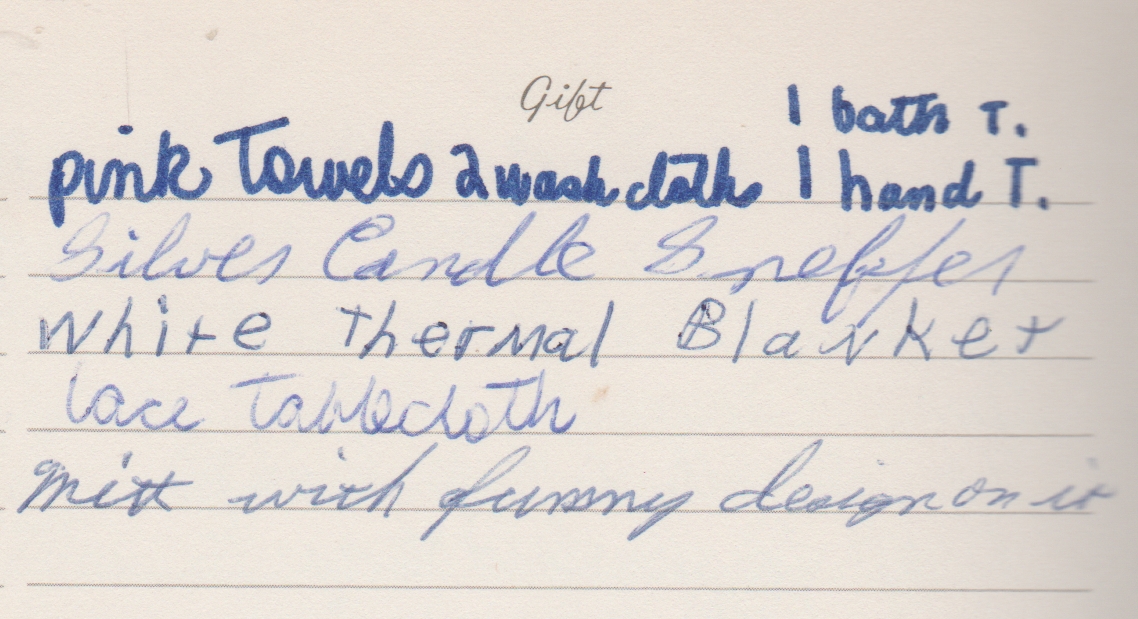 Gift
1 bath T.
pink Towels 2 wash cloths 1 hand T.
Silver Candle Sneffer
White Thermal Blanket
lace Tablecloth
Mitt with funny design on it